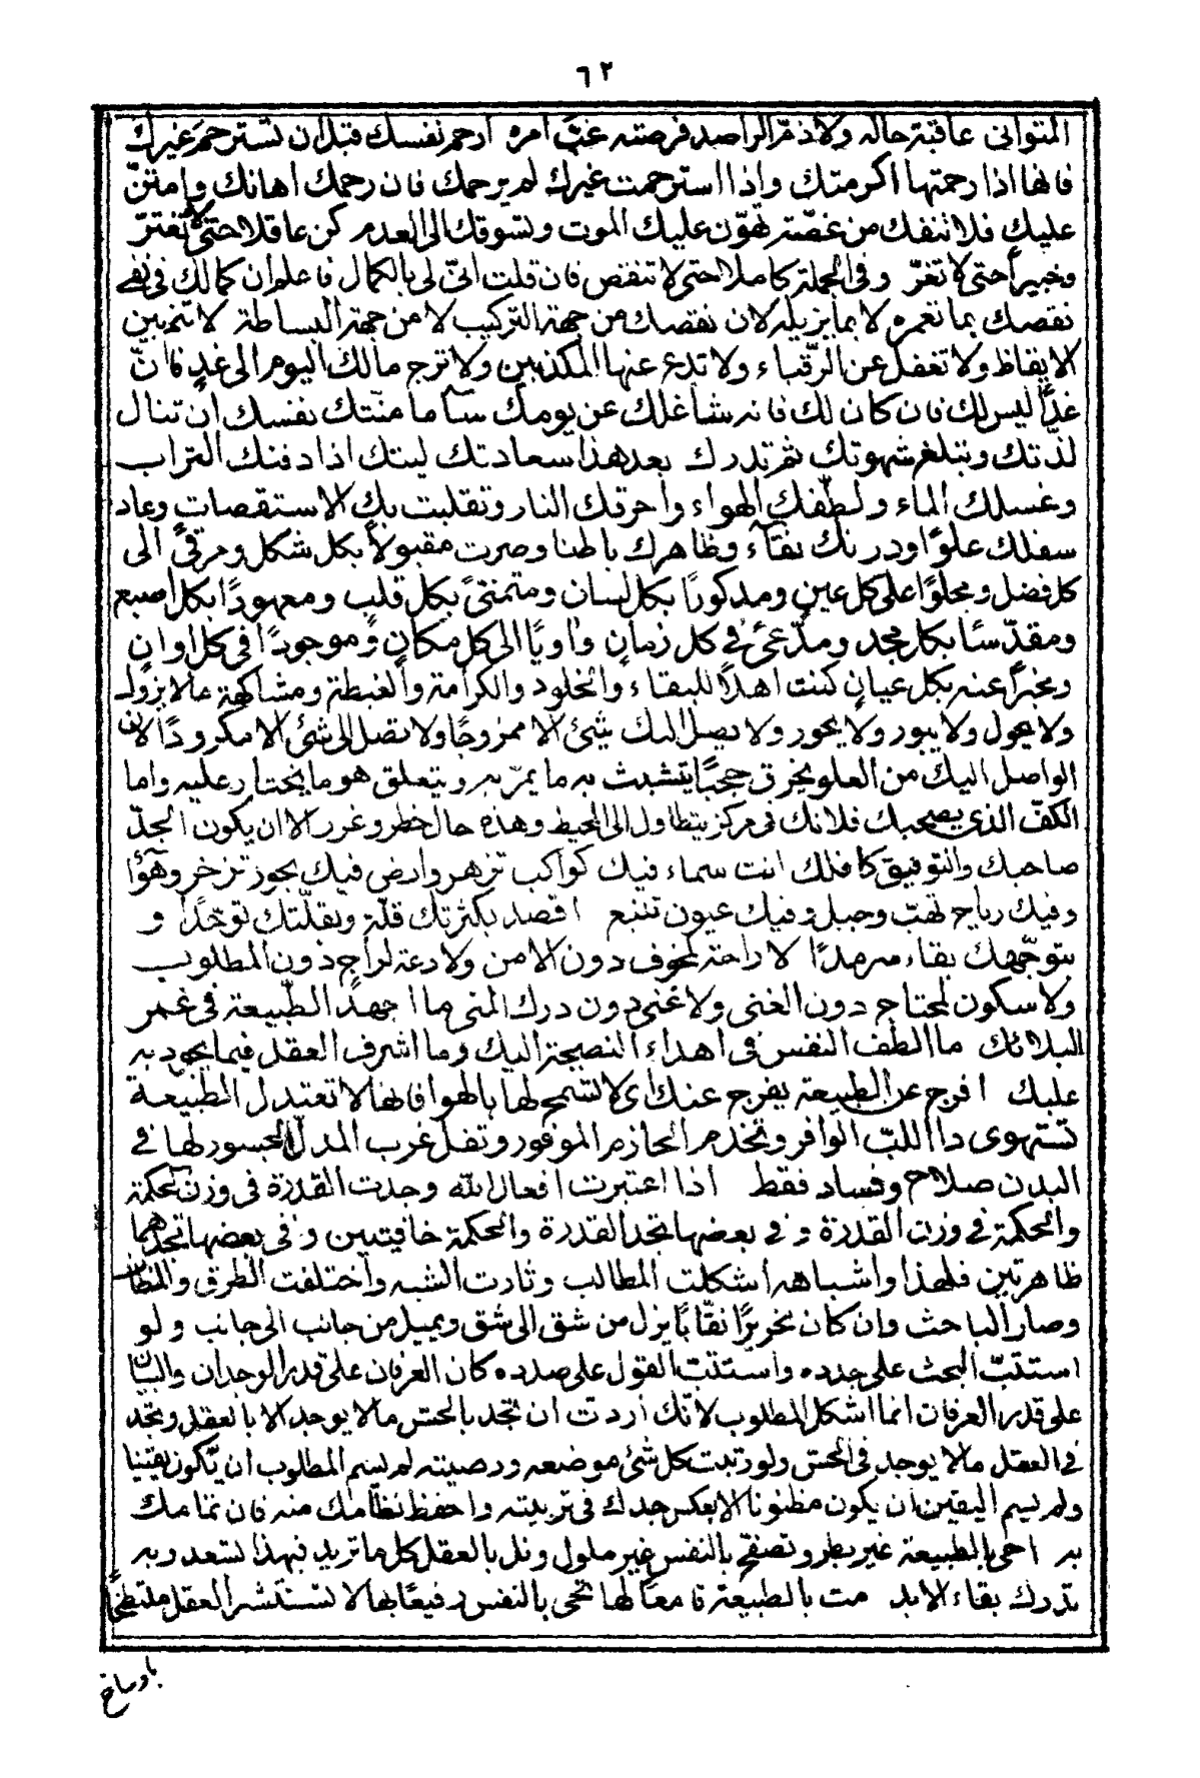 ٦٢
المتوانى عاقبة حاله ولا ذمّ الراصد فرصته غبّ امره ارحم نفسك قبل ان تسترحم غيرك
فانها اذا رحمتها اكرمتك واذا استرحمت غيرك لم يرحمك فان رحمك اهانك وامتنّ
عليك فلا تنفك من غصّة تهوّن عليك الموت وتسوقك الى العدم كن عاقلا حتى لا تغترّ
وخبيراً حتى لا تغرّ وفى الجملة كاملا حتى لا تنقص فان قلت انىّ لى بالكمال فاعلم ان كمالك فى نفى
نقصك بما تعمره لا بما يزيله لان نقصك من جهة التركيب لا من جهة البساطة لا تتهيبن
الايقاظ ولا تغفل عن الرّقباء ولا تدع عنها المكذبين ولا ترج مالك اليوم الى غد فانّ
غداً ليس لك فان كان لك فانه شاغلك عن يومك ما منّتك نفسك ان تنال
لذّتك وتبلغ شهوتك ثم تدرك بعد هذا سعادتك ليتك اذا دفنك التراب
وغسلك الماء ولطّفك الهواء واحرقك النار وتقلبت بك الاستقصات وعاد
سفلك علوًا ودرنك نقآء وظاهرك باطنا وصرت مقبولاً بكل شكل ومرقىً الى
كل فضل ومجلوًا على كل عين ومذكورًا بكل لسان ومتمنىً بكل قلب ومعهودًا بكل اصبع
ومقدّسًا بكل مجد ومدّعىً فى كل زمان واويًا الى كل مكان وموجودًا فى كل اوان
ومخبراً عنه بكل عيان كنت اهلاً للبقاء والخلود والكرامة والغبطة ومشاكهة ما لا يزول
ولا يحول ولا يبور ولا يحور ولا يصل اليك شئ الا ممزوجًا ولا تصل الى شئ الا مكدودًا لان
الواصل اليك من العلو يخرق حجبًا يتشبث به ما يمرّ به ويتعلق هو ما يجتاز عليه واما
الكفّ الذى يصحبك فلانك فى مركز يتطاول الى المحيط وهذه حال خطر وغرر الا ان يكون الجدّ
صاحبك والتوفيق كافلك انت سماء فيك كواكب تزهر وارض فيك بحور تزخر وهوآ
وفيك رياح تهبّ وجبل وفيك عيون تنبع اقصد بكثرتك قلّة وبقلّتك توحّداً و
بتوحّدك بقاء سرمدًا لا راحة لمخوف دون الامن ولا دعة لراج دون المطلوب
ولا سكون لمحتاج دون الغنى ولا غنى دون درك المنى ما اجهد الطّبيعة فى غمر
البلاء بك ما الطف النفس فى اهداء النصيحة اليك وما اشرف العقل فيما يجود به
عليك افرج عن الطبيعة يفرج عنك اى لا تسمح لها بالهوا فانها لا تعتدل الطّبيعة
تستهوى ذا اللبّ الوافر وتخذم الحازم الموفور وتفل غرب المدلّ الجسور لها فى
البدن صلاح وفساد فقط اذا اعتبرت افعال الله وجدت القدرة فى وزن الحكمة
والحكمة فى وزن القدرة و فى بعضها تجد القدرة والحكمة خافيتين و فى بعضها تجدهما
ظاهرتين فلهذا واشباهه اشكلت المطالب وثارت الشبه واختلفت الطرق والمظان
وصار الباحث وان كان نحريرًا نقّابًا يزل من شق الى شق ويميل من جانب الى جانب ولو
استتبّ البحث على جدده واستتبّ القول على صدده كان العرفان على قدر الوجدان والبيان
على قدر العرفان انما اشكل المطلوب لانك اردت ان تجد بالحسّ ما لا يوجد الا بالعقل وتجد
فى العقل ما لا يوجد فى الحسّ ولو رتبت كل شئ موضعه ورصيته لم يسم المطلوب ان يكون يقينا
ولم يسم اليقين ان يكون مظنونا الا بعكس جدك فى تربيته واحفظ نظامك منه فان تمامك
به احى بالطبيعة غير بطر وتصفّح بالنفس غير ملول ونل بالعقل كل ما تريد فبهذا تسعد وبه
تدرك بقاء الابد مت بالطبيعة قامعًا لها تحى بالنفس رفيعًا بها لا تستشر العقل ملتطخًا
باوساخ